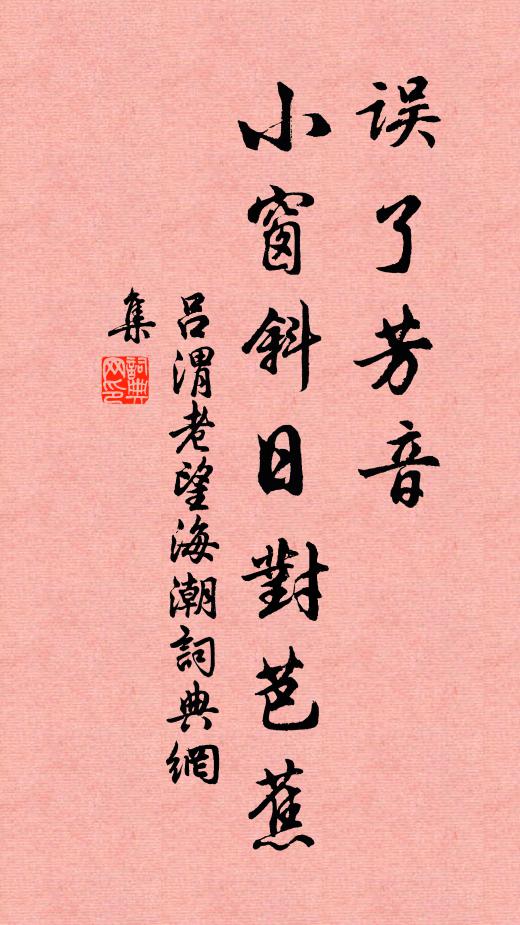 误了芳音
小窗斜日對芭蕉
吕渭老望海潮詞典網
集
詞典
网印